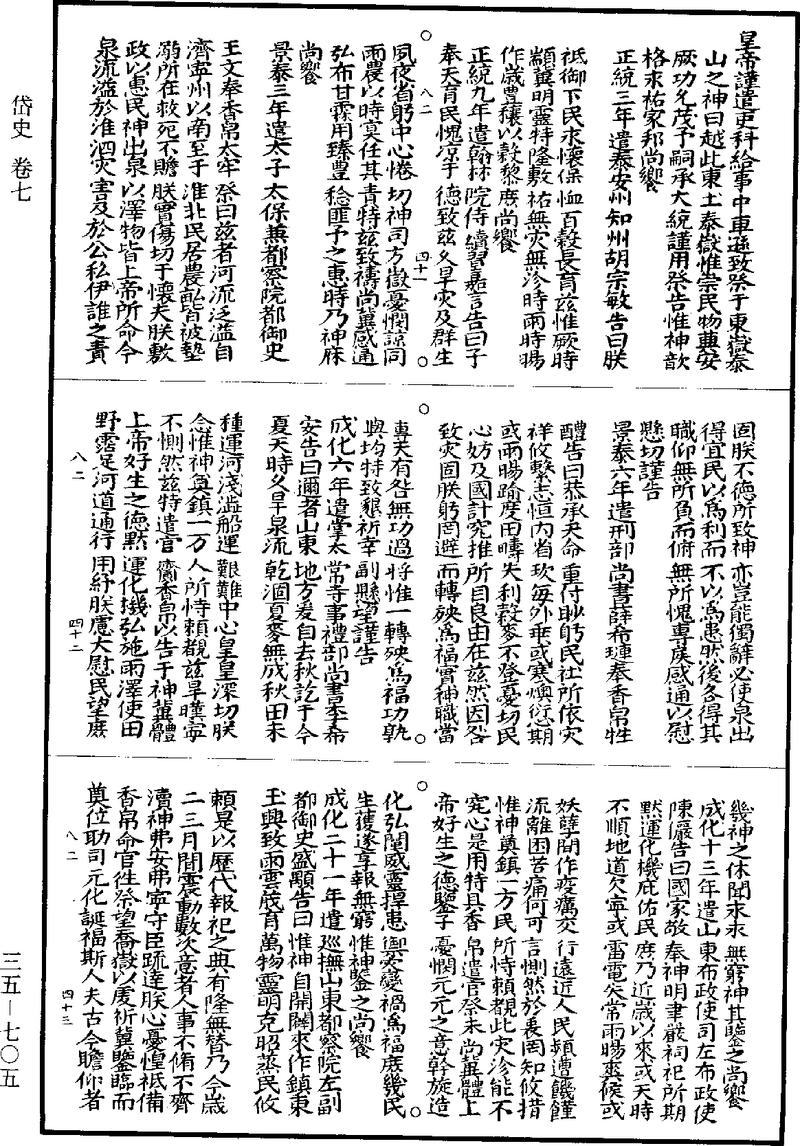 岱史 卷七
皇帝謹遣吏科給事中車遜致祭于東嶽泰
山之神曰越此東土泰嶽惟崇民物奠安
厥功允茂予嗣承大統謹用祭告惟神歆
格永祐家邦尚饗
正統三年遣泰安州知州胡宗敏告曰朕
祗御下民永懷保恤百穀長育玆惟厥時
顓冀明靈特隆敷祐無灾無沴時雨時暘
作歲豊穰以穀黎庶尚饗
正統九年遣翰林院侍讀習嘉言告曰予
奉天育民愧凉于德致玆久旱灾及群生
八二
四十一
夙夜省躬中心惓切神司方徵憂憫諒同
雨農以時莫任其責特玆致禱尚冀感通
弘布甘霖用臻豊稔匪予之惠時乃神庥
尚饗
景泰三年遣太子太保兼都察院都御史
王文奉香帛太牢祭曰玆者河流泛溢自
濟寧州以南至于淮北民居農畝皆被墊
溺所在救死不贍朕實傷切于懷夫朕敷
政以惠民神出泉以澤物皆上帝所命今
泉流溢於淮泗灾害及於公私伊誰之責
固朕不德所致神亦豈能獨辭必使泉出
得宜民以為利而不以為患然後各得其
職仰無所負而俯無所愧專竢感通以慰
懸切謹告
景泰六年遣刑部尚書薛希璉奉香帛牲
醴告曰恭承天命重付眇躬民社所依灾
祥攸繫志恒內省玫每外乖或寒燠愆期
或雨暘踰度田疇失利穀麥不登憂切民
心妨及國計究推所目良由在玆然因咎
致灾固朕躬罔避而轉殃為福實神職當
專夫有咎無功過將惟一轉殃為福功孰
與均特致懇祈幸副懸望謹告
成化六年遣掌太常寺事禮部尚書李希
安告曰邇者山東地方爰自去秋訖于今
夏天時久旱泉流乾涸夏麥無成秋田未
種運河淺澁船運艱難中心皇皇深切朕
念惟神奠鎮一方人所恃賴覩玆旱暵寧
不惻然玆特遣官齎香帛以告于神冀體
上帝好生之德默運化機弘施雨澤使田
野霑足河道通行用紓朕慮大慰民望庶
八二
四十二
幾神之休聞永永無窮神其鑒之尚饗
成化十三年遣山東布政使司左布政使
陳儼告曰國家敬奉神明聿嚴祠祀所期
默運化機庇佑民庶乃近歲以來或天時
不順地道欠寧或雷電失常雨暘爽候或
妖孽間作疫癘交行遠近人民頻遭饑饉
流離困苦痛何可言惻然於衷罔知攸措
惟神奠鎮一方民所恃賴覩此灾沴能不
究心是用特具香帛遣官祭未尚冀體上
帝好生之德鑒予憂憫元元之意斡旋造
化弘闡威靈捍患禦災變禍為福庶幾民
生獲遂享報無窮惟神鑒之尚饗
成化二十一年遣巡撫山東都察院左副
都御史盛顒告曰惟神自開闢來作鎮東
土興致雨雲茂育萬物靈明克昭蒸民攸
賴是以歷代報祀之典有隆無替乃今歲
二三月間震動數次意者人事不脩不齊
瀆神弗安弗寧守臣疏達朕心憂惶祗備
香帛命官徃祭望喬嶽以虔祈冀鑒臨而
奠位助司元化誕福斯人夫古今瞻仰者
八二
四十三
三五—七〇五